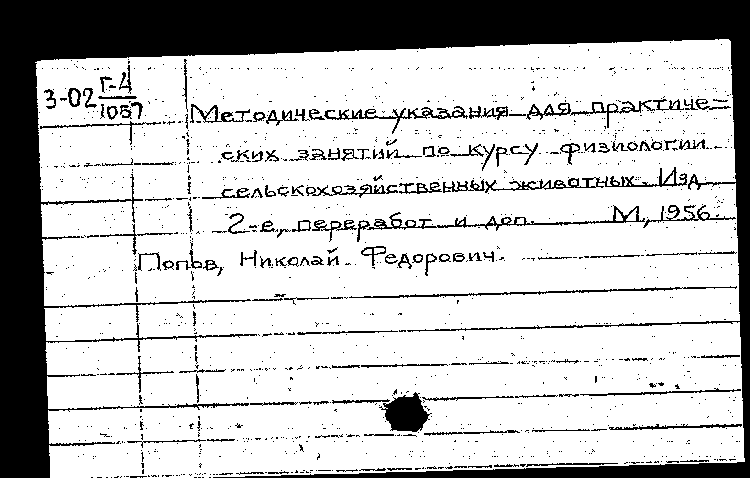 3-02 Г-4
1057
Методические указания для практиче=
ских занятий по курсу физиологии
сельскохозяйственных животных. Изд.
2-е, переработ и доп. М., 1956.
Попов, Николай Федорович.